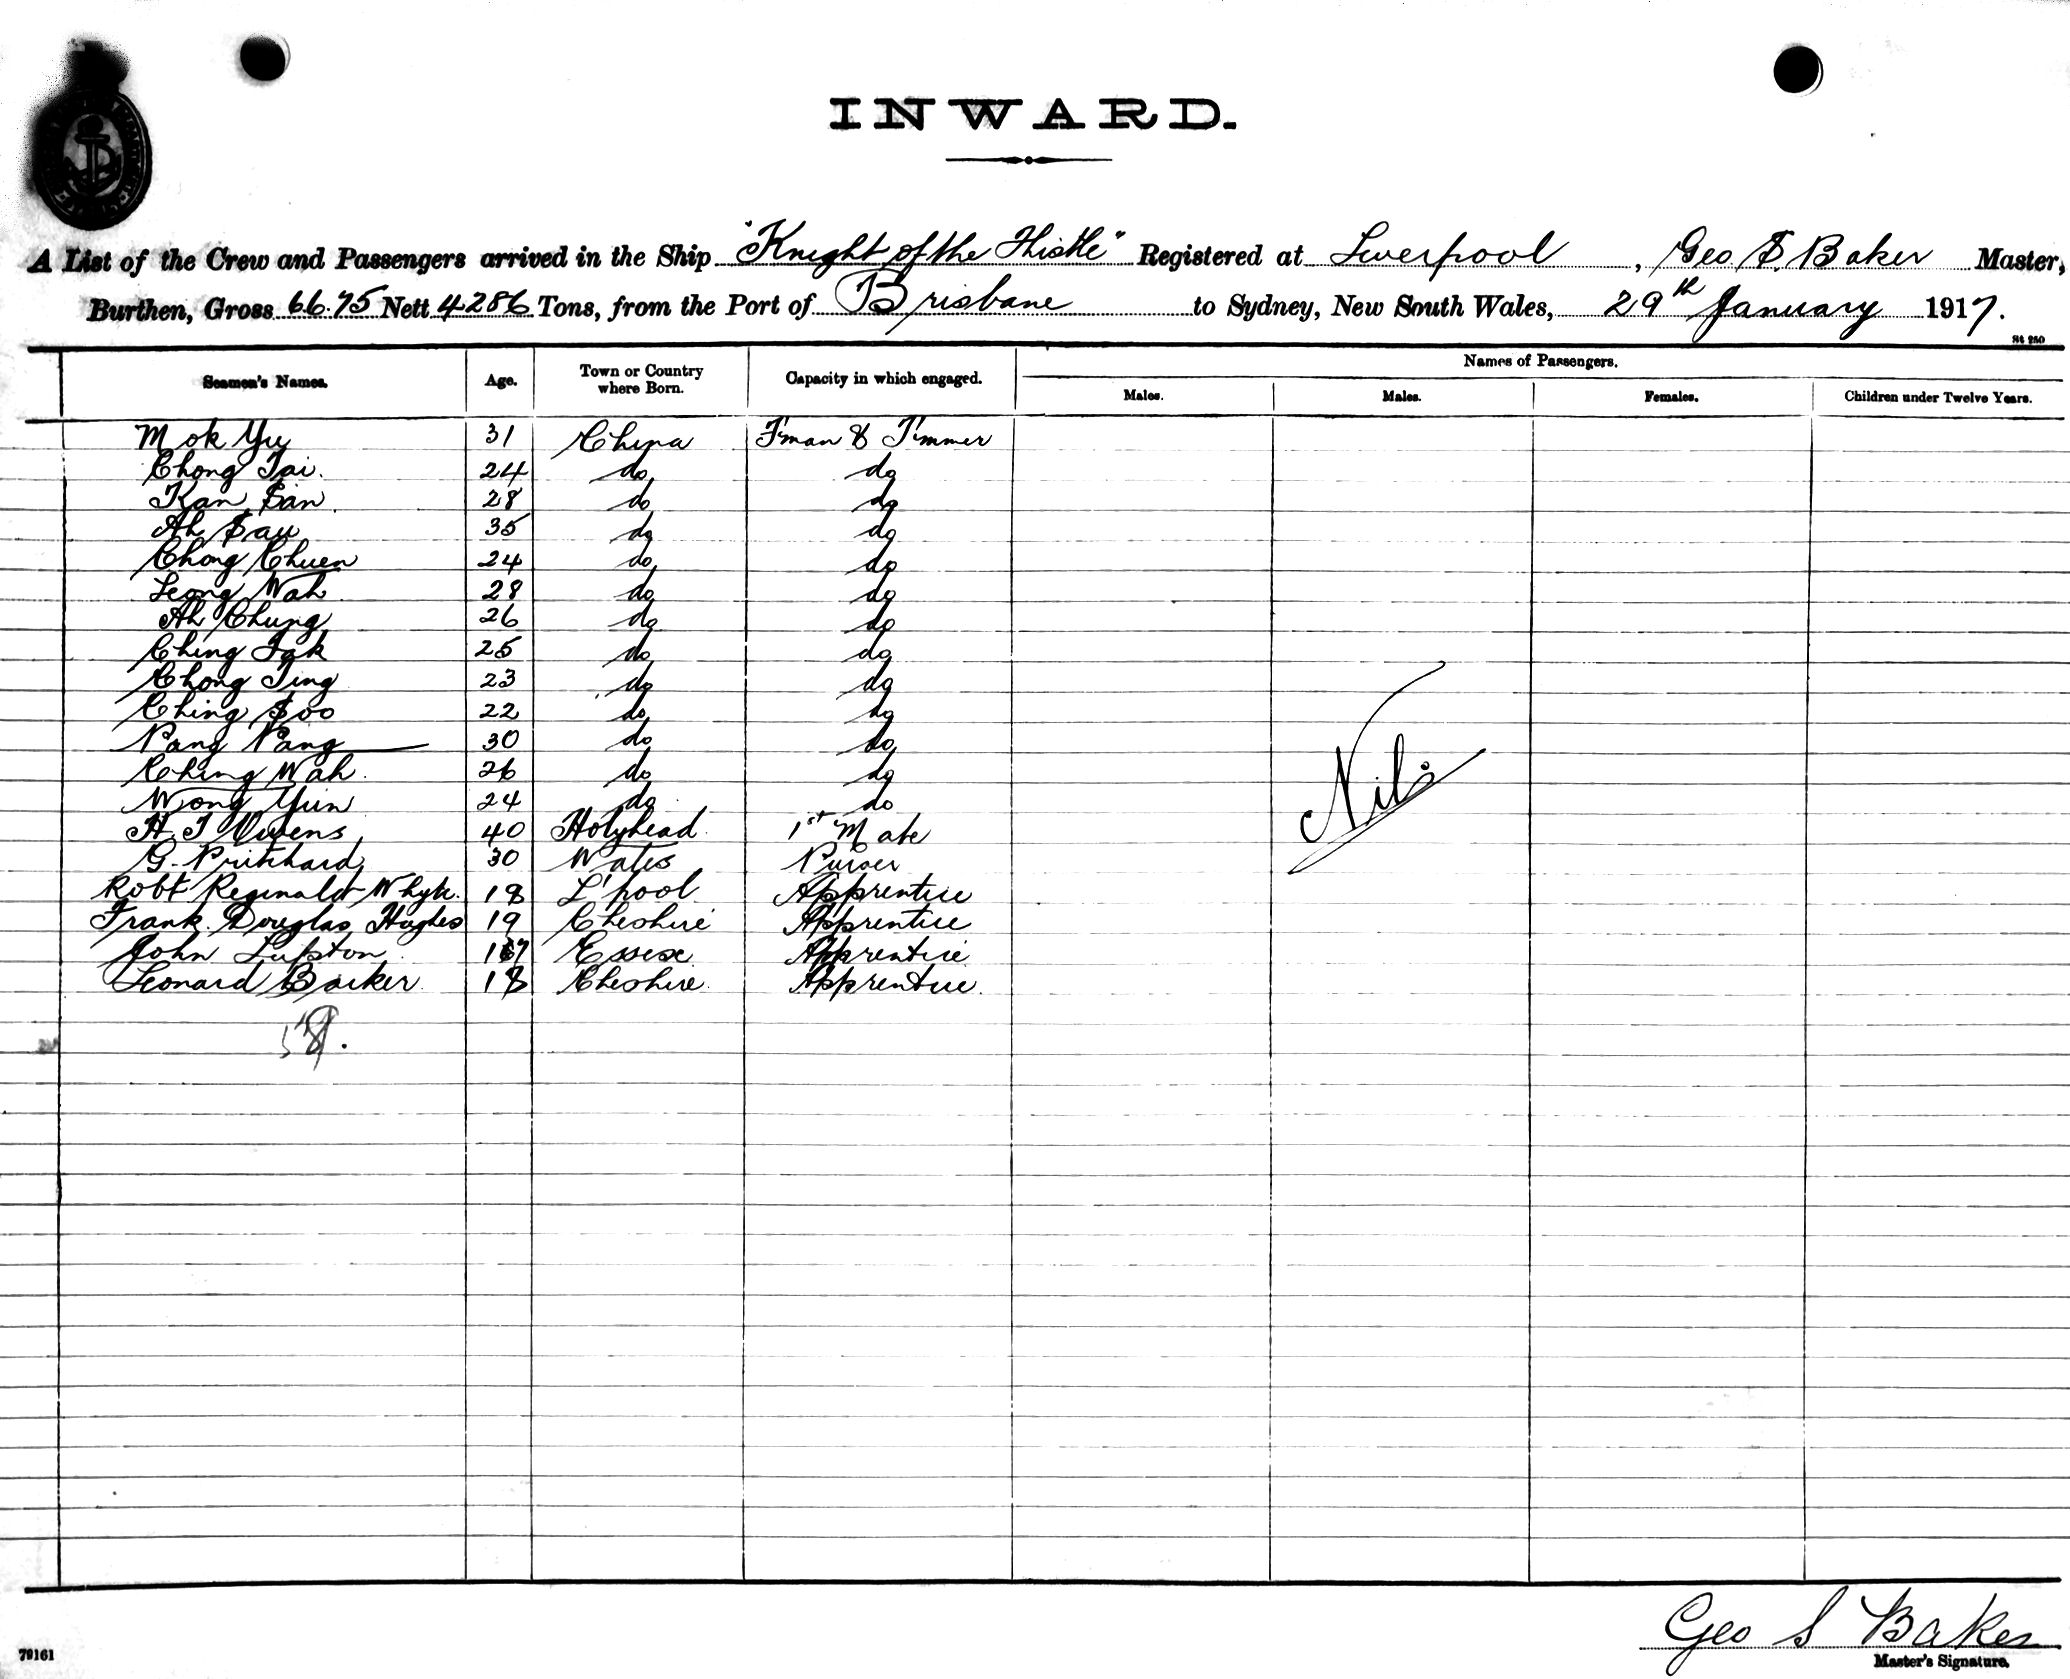 INWARD.
A List of the Crew and Passengers arrived in the Ship "Knight of the Thistle" Registered at Liverpool, Geo. S. Baker Master,
Burthen, Gross 66.75 Nett 4286 Tons, from the Port of Brisbane to Sydney, New South Wales, 29th January 1917.
St 250
Seamen's Names. Age. Town or Country where Born. Capacity in which engaged. Names of Passengers.
Males. Males. Females. Children under Twelve Years.
Mok Yu 31 China F'man & T'mmer
Chong Tai. 24 do do
Kan San. 28 do do
Ah Sau 35 do do
Chong Chuen 24 do do
Leong Wah 28 do do
Ah Chung 26 do do
Ching Fak 25 do do
Chong Ting 23 do do
Ching Soo 22 do do
Pang Pang 30 do do
Ching Wah. 26 do do
Wong Yun 24 do do
H. J Owens 40 Holyhead. 1st Mate
G. Pritchard 30 Wales Purser
Robt Reginald Whyte. 18 L'pool. Apprentice
Frank. Douglas Hughes 19 Cheshire Apprentice
John Lupton 17 Essex Apprentice
Leonard Barker. 18 Cheshire. Apprentice.
58.
Nil.
Geo S Baker
Master's Signature.
79161